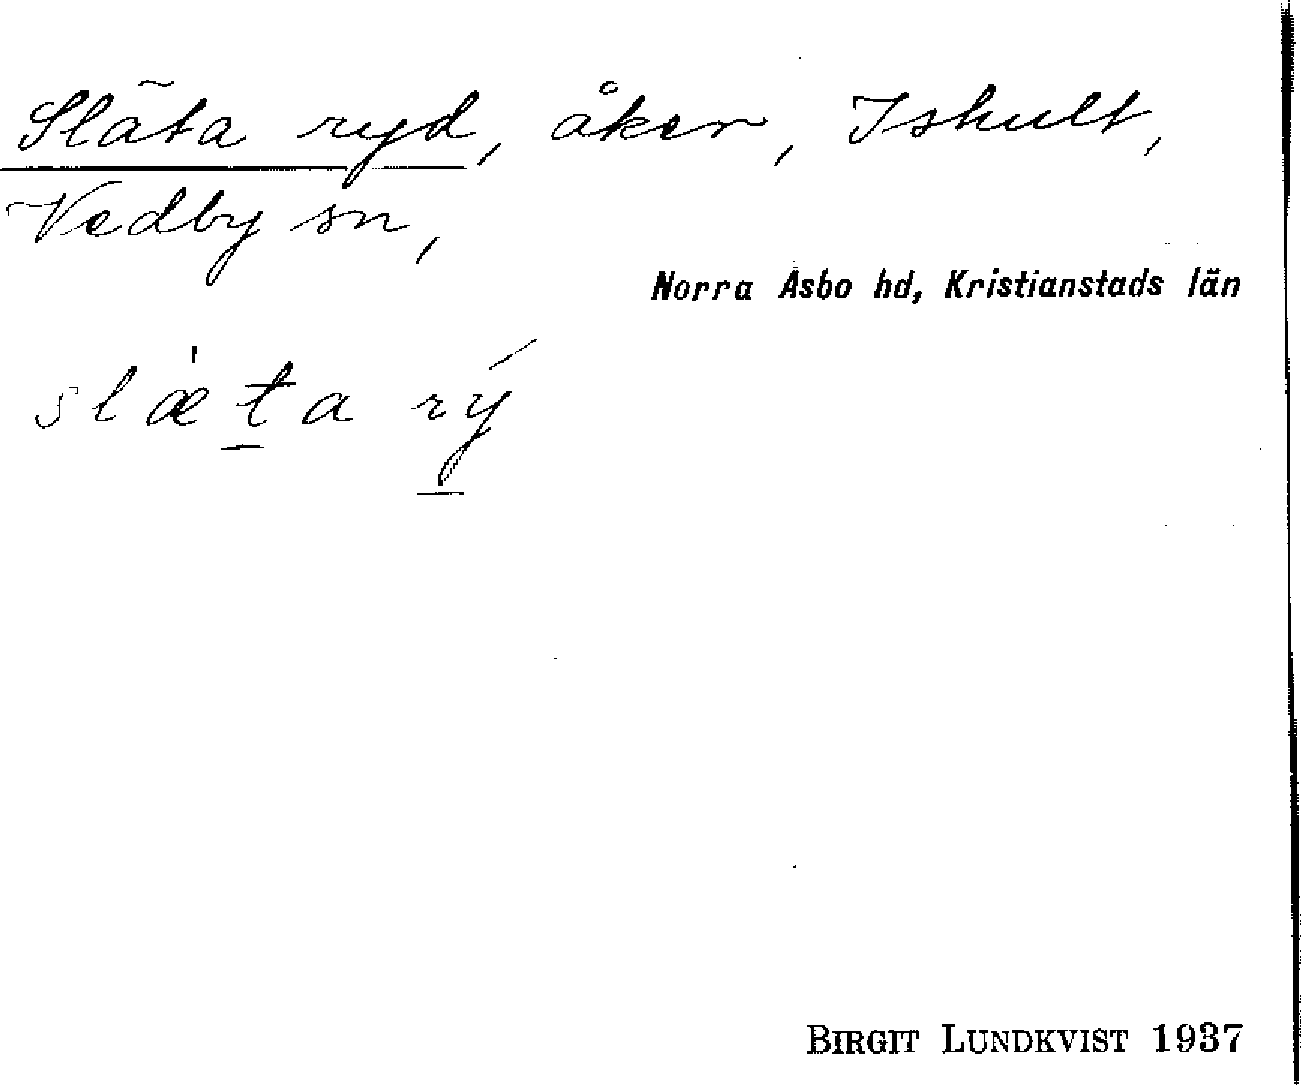 Släta ryd, åker, Ishult,
Vedby sn,
Norra Åsbo hd, Kristianstads län
slæ̍t̠a rý̠
BIRGIT LUNDKVIST 1937